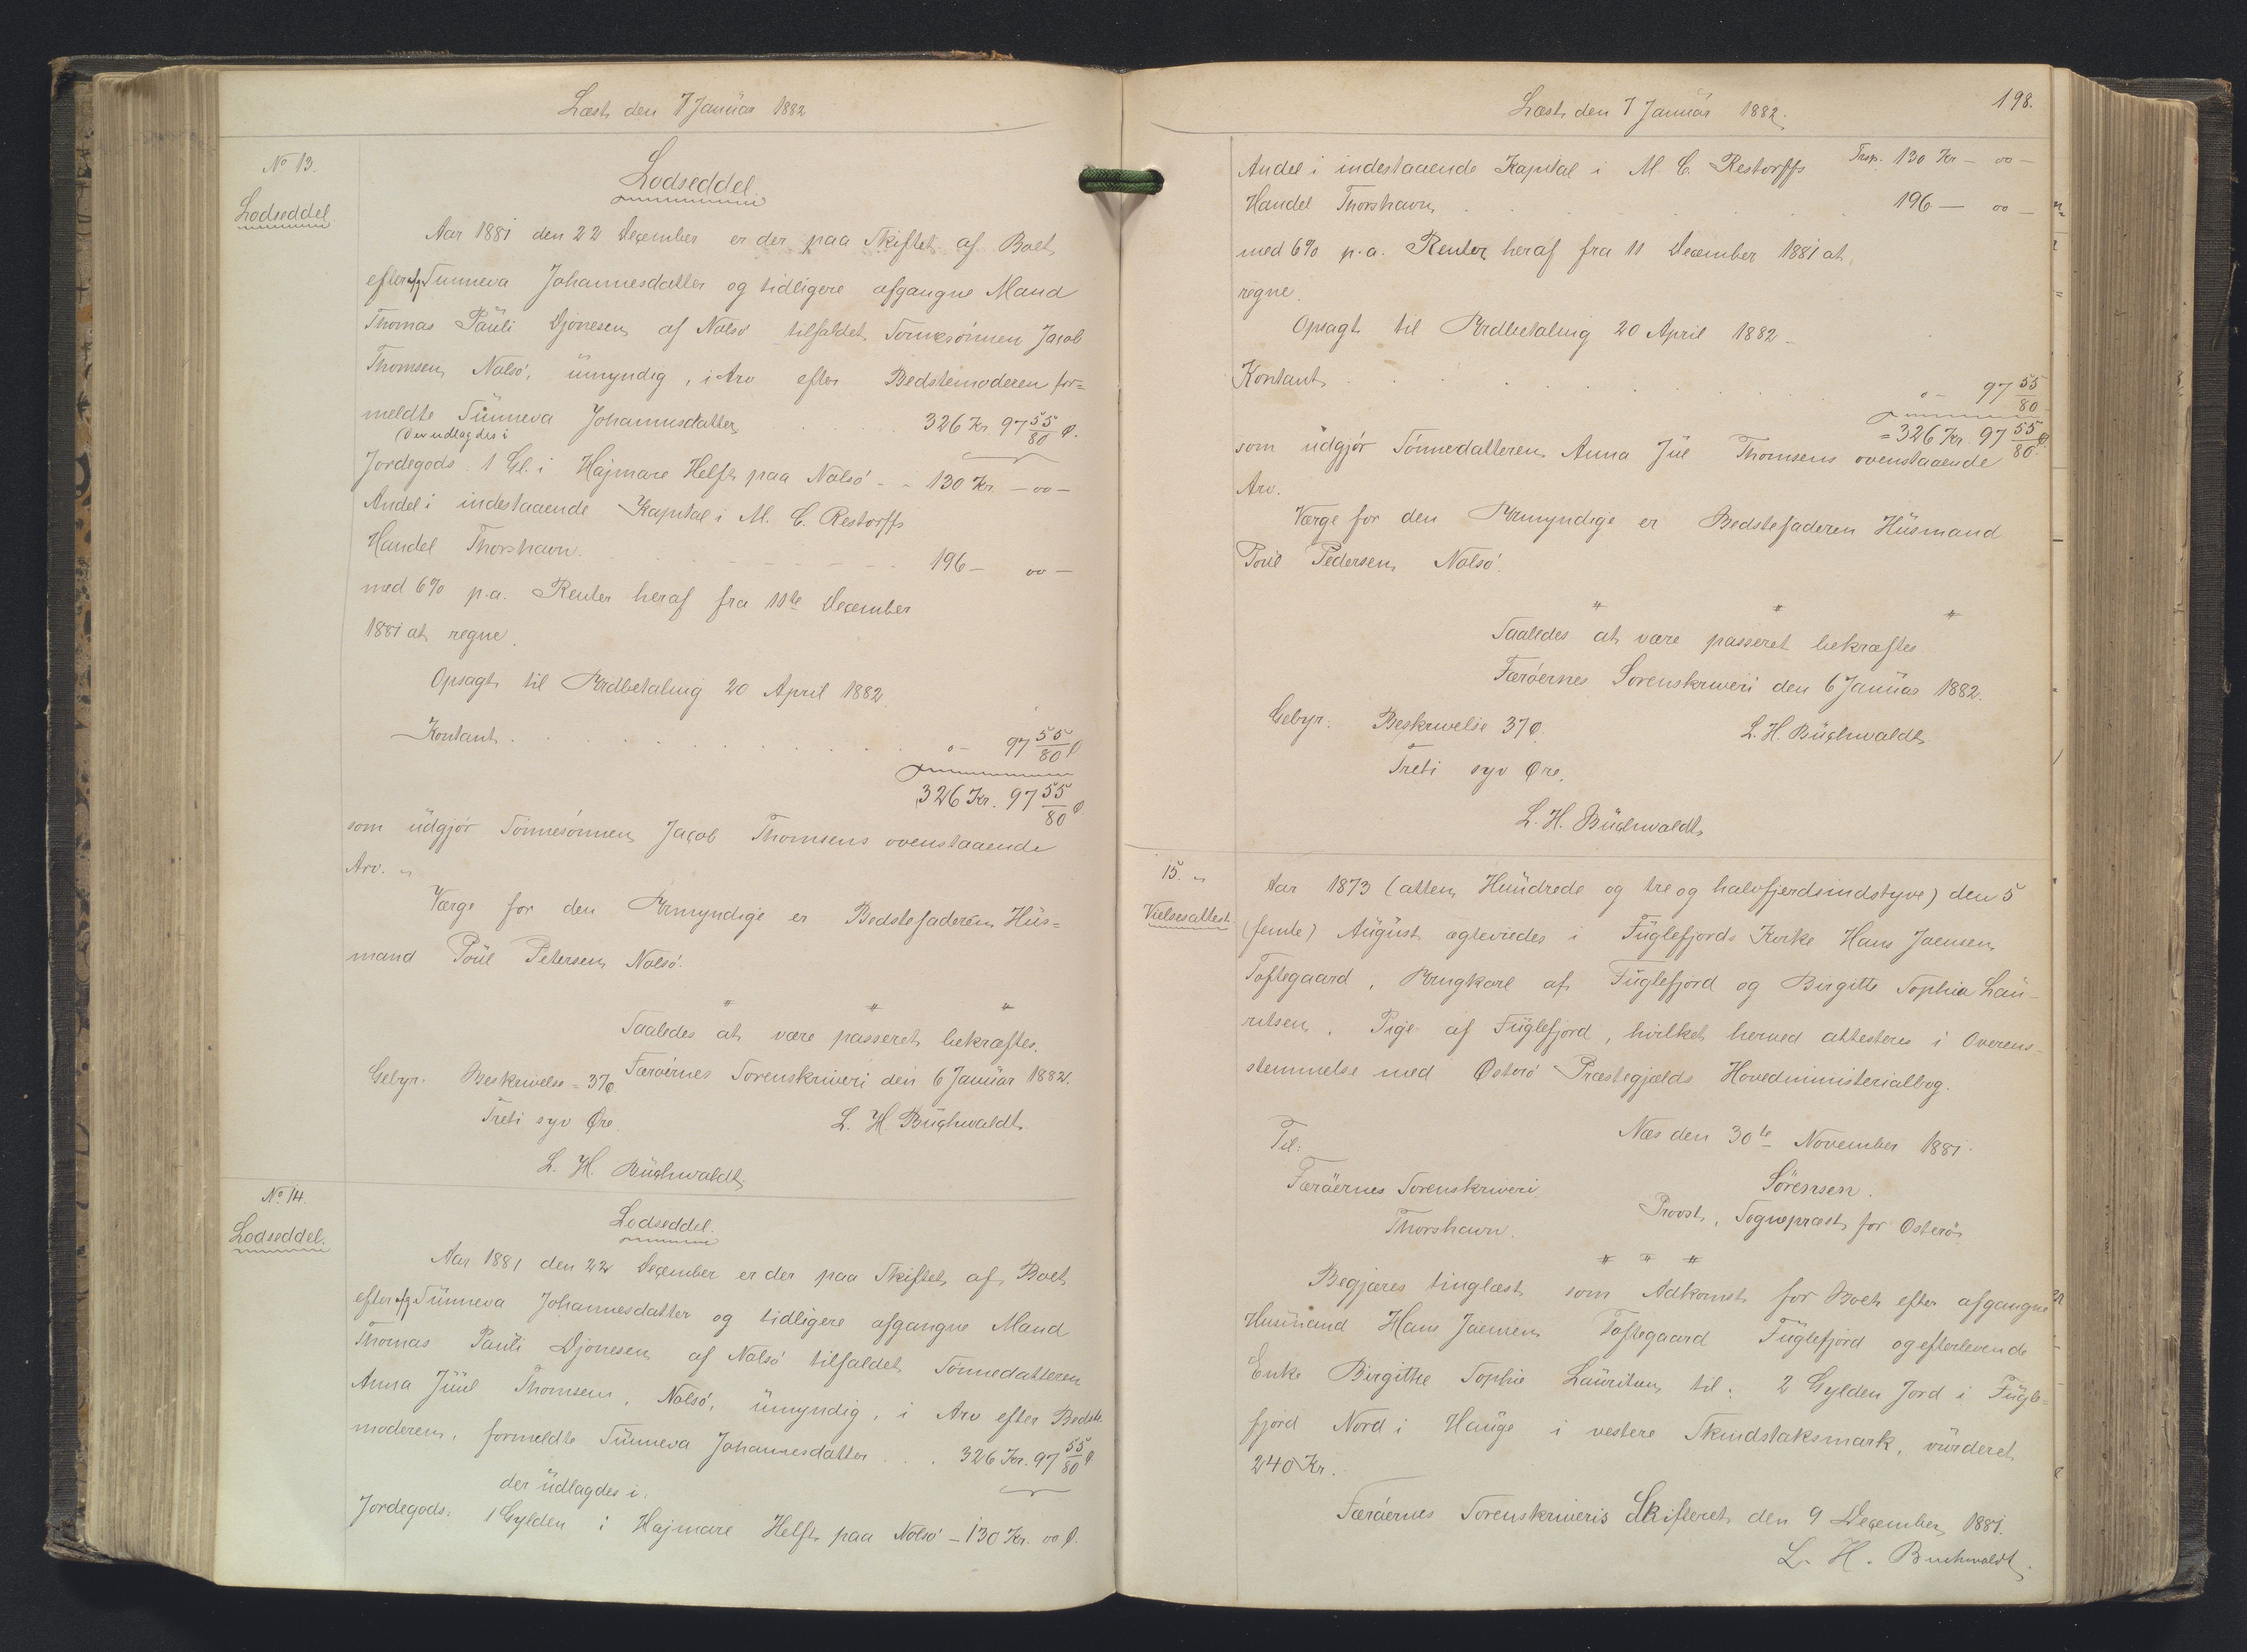 Læst den 7 Januar 1882
No 13.
Lodseddel
Lodseddel.
Aar 1881 den 22 December er der paa Skiftet af Boet
efter afg Sunneva Johannesdatter og tidligere afgangne Mand
Thomas Pauli Djonesen af Nolsö tilfaldet Sönnesönnen Jacob
Thomsen, Nolsö, umyndig, i Arv efter Bedstemoderen for=
meldte Sunneva Johannesdatter . . . 326 Kr. 97 55/80 Ø.
(Der udlagdes i
Jordegods: 1 Gl. i Hajmare Helft paa Nolsö - - 130 Kr - oo -
Andel i indestaaende Kapital i M. C. Restorffs
Handel Thorshavn. - - - - - - 196 - oo -
med 6% p.a. Renter heraf fra 11te December
1881 at regne.
Opsagt til Udbetaling 20 April 1882.
Kontant . . . . . . . . . . . " - 97 55/80 Ø
326 Kr. 97 55/80 Ø
som udgjör Sönnesönnen Jacob Thomsens ovenstaaende
Arv. "
Værge for den Umyndige er Bedstefaderen Hus=
mand Poul Petersen Nolsö.
" " "
Saaledes at være passeret bekræftes.
Færöernes Sorenskriveri den 6 Januar 1882.
Gebyr. Beskrivelse = 37 Ø.
Treti syv Øre.
L. H. Buchwaldt
L. H. Buchwaldt.
No 14.
Lodseddel.
Lodseddel.
Aar 1881 den 22 December er der paa Skiftet af Boet
efter afg Sunneva Johannesdatter og tidligere afgangne Mand
Thomas Pauli Djonesen af Nolsö tilfaldet Sönnedatteren
Anna Juul Thomsen, Nolsö, umyndig, i Arv efter Bedste
moderen, formeldte Sunneva Johannesdatter . . . 326 Kr. 97 55/80 Ø
der udlagdes i.
Jordegods: 1 Gylden i Hajmare Helft paa Nolsö - 130 Kr. oo Ø.
Læst den 7 Januar 1882.
198.
Trsp. 130 Kr - oo -
Andel i indestaaende Kapital i M. C. Restorffs
Handel Thorshavn . . . . . . 196 - oo -
med 6% p.a. Renter heraf fra 11 December 1881 at
regne.
Opsagt til Udbetaling 20 April 1882.
Kontant . . . . . . . . . " - 97 55/80
= 326 Kr. 97 55/80 Ø.
som udgjör Sönnedatteren Anna Jul Thomsens ovenstaaende
Arv.
Værge for den Umyndige er Bedstefaderen Husmand
Poul Pedersen Nolsö.
" " "
Saaledes at være passeret bekræftes
Færöernes Sorenskriveri den 6 Januar 1882.
Gebyr. Beskrivelse 37 Ø.
L. H. Buchwaldt
Treti syv Øre.
L. H. Buchwaldt
15. "
Vielsesattest
Aar 1873 (atten Hundrede og tre og halvfjerdsindstyve) den 5
(femte) August ægteviedes i Fuglefjords Kirke Hans Joensen
Toftegaard, Ungkarl af Fuglefjord og Birgitte Sophia Lau-
ritsen, Pige af Fuglefjord, hvilket herved attesteres i Overens-
stemmelse med Østerö Præstegjælds Hovedministerialbog.
Næs den 30te November 1881.
Til:
Færöernes Sorenskriveri
Thorshavn.
Sörensen.
Provst, Sognepræst for Österö.
" " "
Begjæres tinglæst som Adkomst for Boet efter afgangne
Husmand Hans Joensen Toftegaard Fuglefjord og efterlevende
Enke Birgitte Sophie Lauritsen til: 2 Gylden Jord i Fugle=
fjord Nord i Hauge i vestere Skindstaksmark, vurderet
240 Kr.
Færöernes Sorenskriveris Skifteret den 9 December 1881.
L. H. Buchwaldt.